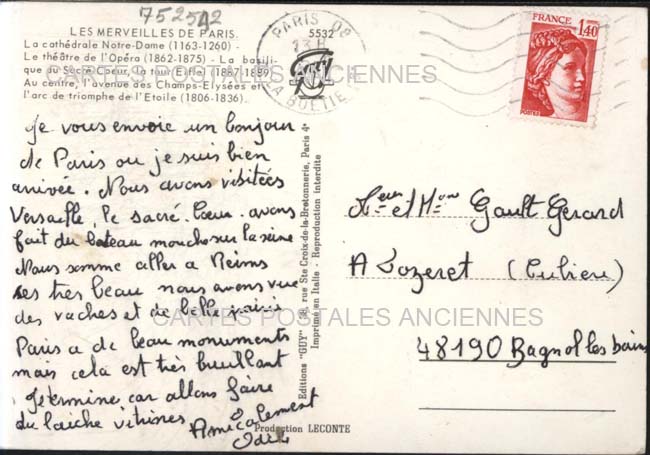 752542
LES MERVEILLES DE PARIS.
5532
La cathédrale Notre-Dame (1163-1260) -
Le théâtre de l'Opéra (1862-1875) - La basili-
que du Sacré-Cœur, la tour Eiffel (1887-1889)
Au centre, l'avenue des Champs-Elysées et
l'arc de triomphe de l'Etoile (1806-1836).
PARIS 08
LA BOETIE
FRANCE
1,40
POSTES
CARTES POSTALES ANCIENNES
Je vous envoie un bonjour
de Paris ou je suis bien
arrivée. Nous avons visitées
Versaille, le sacré-Cœur. avons
fait du bateau mouche sur la seine
Nous somme aller a Reims
ses tres beau nous avons vue
des vaches et de belle
Paris a de beau monuments
mais cela est très bruillant
Je termine car allons faire
du laiche vitrines
Amicalement
Odile
Editions "GUY" 38, rue Ste Croix-de-la-Bretonnerie, Paris 4e
Imprimé en Italie - Reproduction interdite
Gault Gerard
A Lozeret (Cubière)
48190 Bagnol les bains
CARTES POSTALES ANCIENNES
Production LECONTE